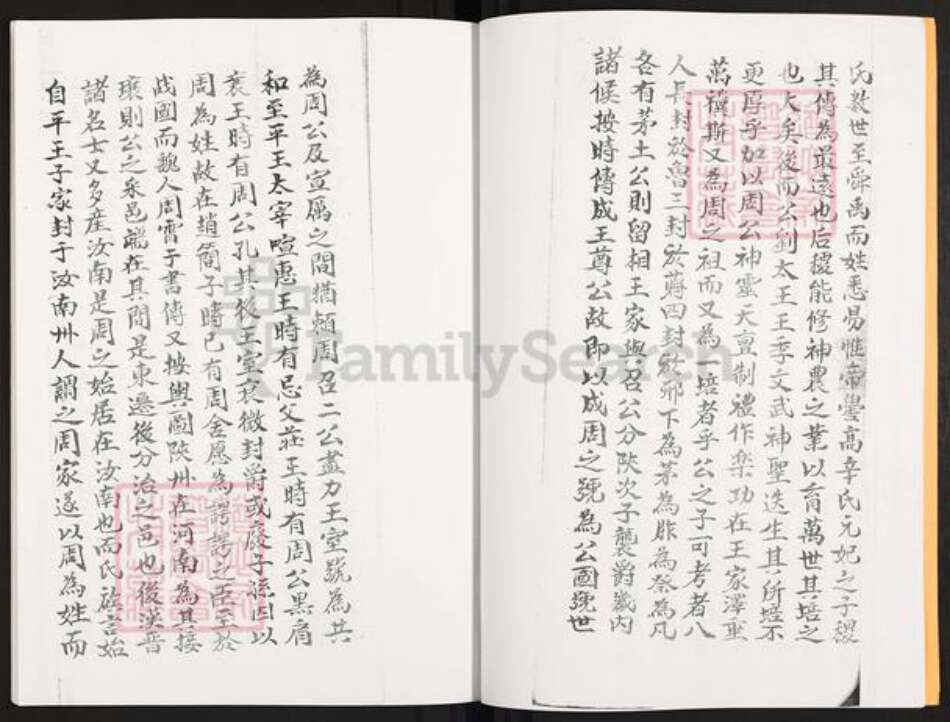 氏数世至舜禹而姓悉易惟帝嚳高辛氏元妃之子稷
其傳為最遠也后稷能修神農之業以育萬世其培之
也大矣後而公劉太王王季文武神聖迭生其所培不
更厚乎加以周公神靈天亶制禮作楽功在王家澤垂
萬禩斯又為周之祖而又為培者乎公之子可考者八
人長封於魯三封於蔣四封於邢下為茅為胙為祭為凡
各有茅土公則留相王家與召公分陝次子襲爵畿内
諸侯按時傳成王尊公故即以成周之號為公國號世
為周公及宣厲之間猶頼周召二公盡力王室號為共
和至平王太宰喧惠王時有忌父莊王時有周公黒肩
襄王時有周公孔其後王室衰微封爵或廢子孫因以
周為姓故在趙簡子時已有周舍愿為諤諤之臣至於
战國而魏人周霄子書傳又按輿圖陝州在河南為其接
壤則公之采邑端在其間是東遷後分治之邑也後漢晋
諸名士又多産汝南是周之始居在汝南也而氏族言始
自平王子家封于汝南州人謂之周家遂以周為姓而
FamilySearch